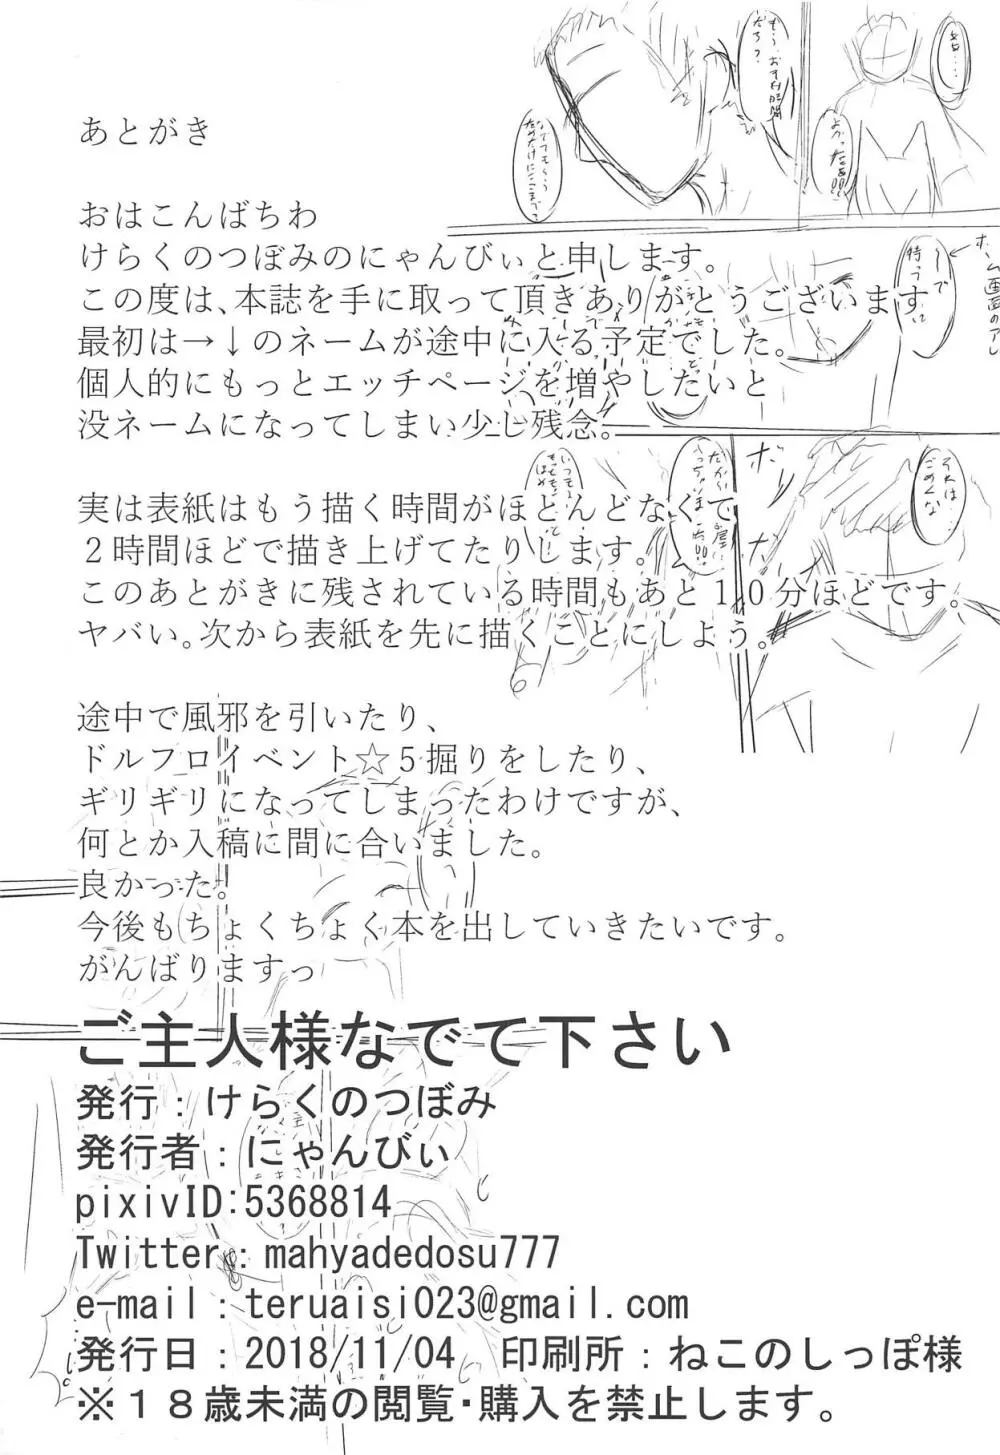 あとがき
おはこんばちわ
けらくのつぼみのにゃんびぃと申します。
この度は、本誌を手に取って頂きありがとうございます
最初は→↓のネームが途中に入る予定でした。
個人的にもっとエッチページを増やしたいと
没ネームになってしまい少し残念。
実は表紙はもう描く時間がほとんどなくて
２時間ほどで描き上げてたりします。
このあとがきに残されている時間もあと１０分ほどです。
ヤバい。次から表紙を先に描くことにしよう。
途中で風邪を引いたり、
ドルフロイベント☆５掘りをしたり、
ギリギリになってしまったわけですが、
何とか入稿に間に合いました。
良かった。
今後もちょくちょく本を出していきたいです。
がんばりますっ
ご主人様なでて下さい
発行：けらくのつぼみ
発行者：にゃんびぃ
pixivID:5368814
Twitter：mahyadedosu777
e-mail：teruaisi023@gmail.com
発行日：2018/11/04　印刷所：ねこのしっぽ様
※１８歳未満の閲覧・購入を禁止します。